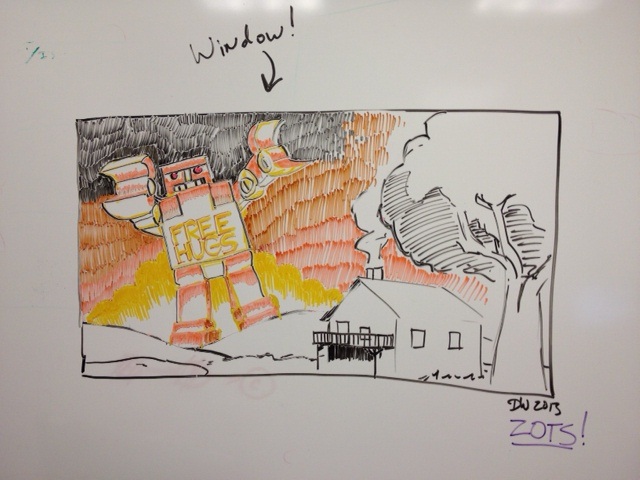 Window!
FREE
HUGS
DW 2013
ZOTS!